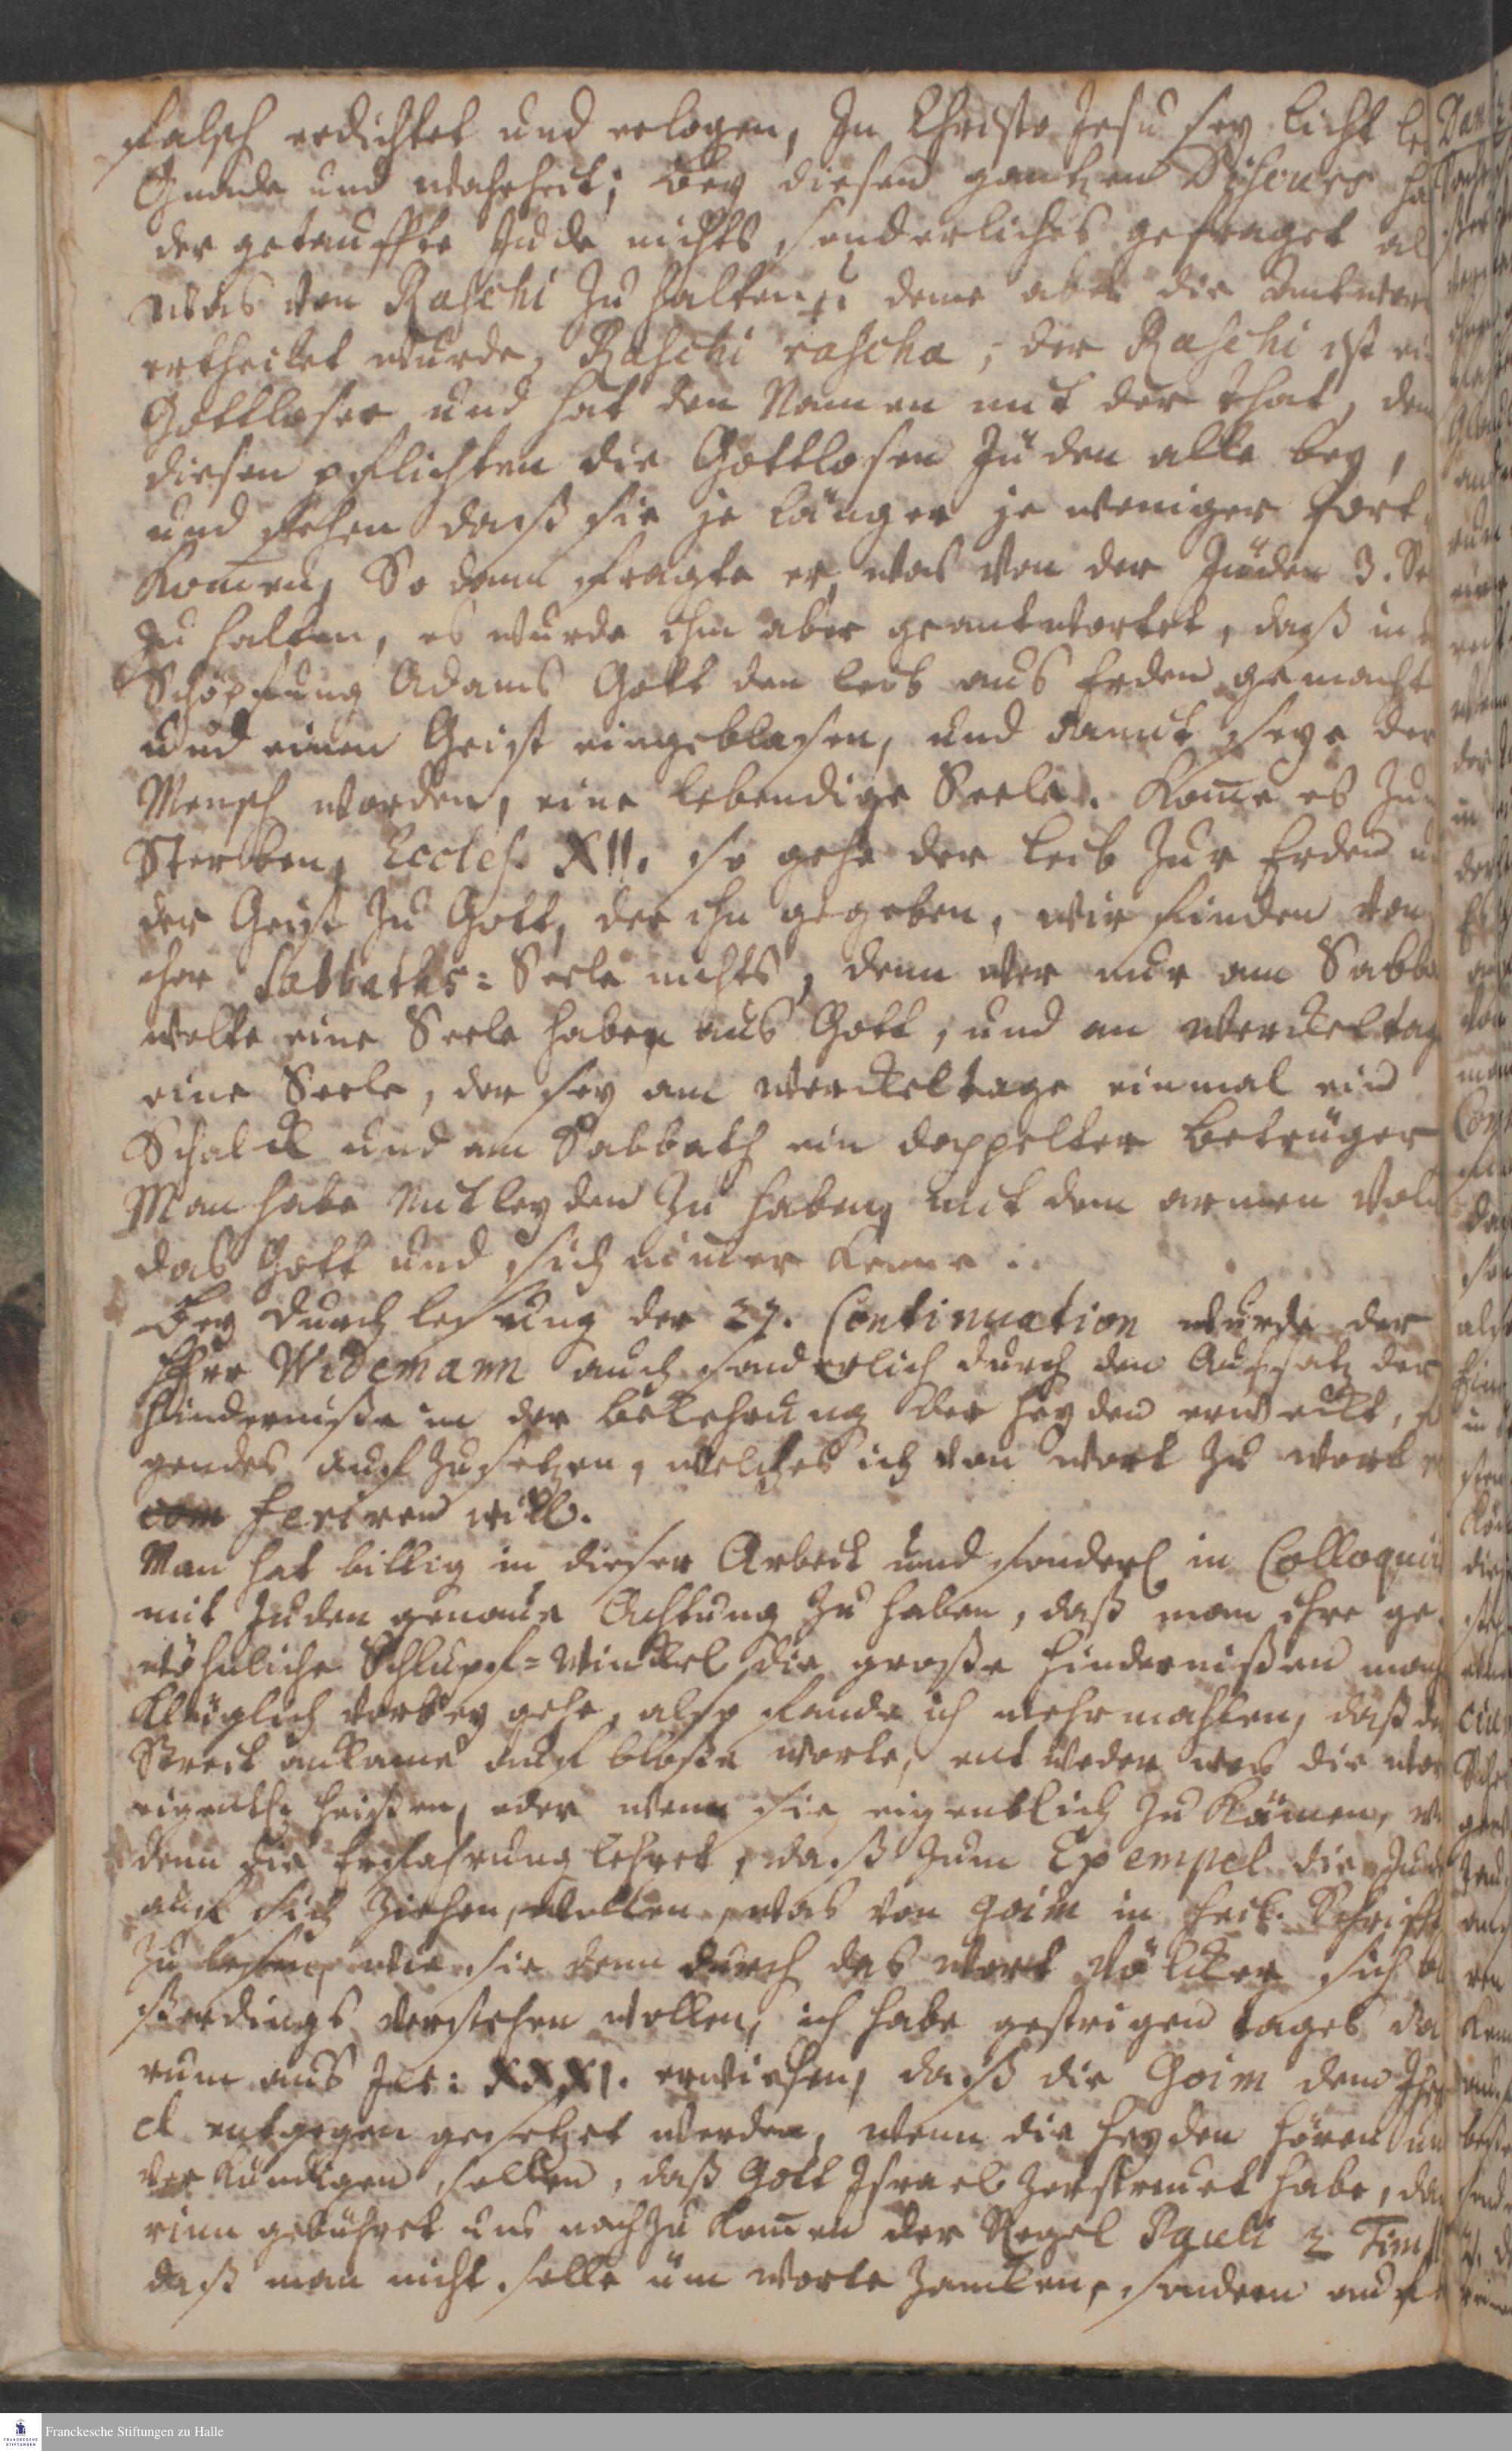 falsch erdichtet und erlogen, In Christo Jesu sey Licht le
Gnade und Wahrheit; bey diesen gantzen Discours ha
der getauffte Jude nichts sonderliches gefraget al
was von Raschi zu halten: deme aber die Antwor
ertheilet wurde, Raschi rascha, der Raschi ist ei
Gottloser und hat den Namen mit der that, den
diesen pflichten die Gottlosen Juden alle bey,
und sehen daß sie je länger je weniger fort
kom̄en, So dann fragte er was von der Juden 3. Se
zu halten, es wurde ihm aber geantwortet, daß in
Schöpfung Adams Gott den Leib aus Erden gemacht
und einen Geist eingeblasen, und damit seye der
Mensch worden, eine lebendige Seele. Kom̄e es zum
Sterben, Eccles. XII. so gehe der Leib zur Erden u
der Geist zu Gott, der ihn gegeben, wir finden von
cher Sabbaths-Seele nichts, denn wer nur am Sabba
wolte eine Seele haben aus Gott, und am werckeltag
eine Seele, der sey am werckeltage einmal ein
Schalck und am Sabbath ein doppelter Betrüger
Man habe Mitleyden zu haben, mit dem armen Volck
das Gott und sich nim̄er kenne.
Bey Durchlesung der 27. Continuation wurde der
Herr Widemann auch sonderlich durch den Aufsatz der
Hinderniße in der Bekehrung der Heyden erweckt,
gendes aufzusetzen, welches ich von wort zu wort
feriren will.
Man hat billig in dieser Arbeit und sonderl in Colloquii
mit Juden genaue Achtung zu haben, daß man ihre ge-
wöhnliche Schlupf-Winckel die große Hindernißen mach
klüglich vorbey gehe, also fande ich mehrmahlen, daß de
Streit ankame auf bloße worte, entweder was die wor
eigentl. heißen, oder wenn sie eigentlich zu kämen, w
denn die Erfahrung lehret, daß zum Exempel die Jude
auf sich ziehen wollen, was von Goim in Heil. Schrifft
zu lesen, wie sie denn durch das wort Völcker sich
ßerdings verstehen wollen, ich habe gestrigen tages da
rum aus Jer: XXXI. erwiesen, daß die Goim dem Isra
el entgegen gesetzet werden, wenn die Heyden hören un
verkündigen sollen, daß Gott Israel zerstreuet habe, da
rinn gebühret uns nachzukom̄en der Regel Pauli 2 Tim
daß man nicht solle üm worte zancken, sondern auf
Franckesche Stiftungen zu Halle